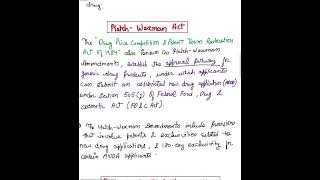 drug
Hatch-Waxman Act
The "Drug Price Competition & Patent Term Restoration
Act of 1984" also known as Hatch-Waxman
Amendments, establish the approval pathway for
generic drug products, under which applicants
can submit an abbreviated new drug application (ANDA)
under section 505(j) of Federal Food, Drug &
Cosmetic Act (FD & C Act).
The Hatch-Waxman Amendments include provisions
that involve patents & exclusivities related to
new drug applications, & 180-day exclusivity for
certain ANDA applicants.